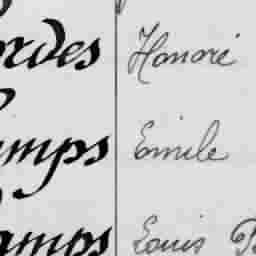 ordes Honoré
mps Emile
amps Louis